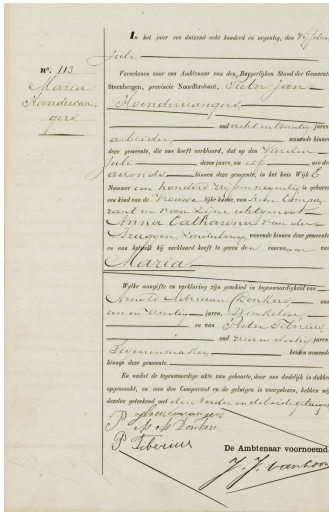 In het jaar een duizend acht honderd en negentig, den vijfden
Juli
No. 113
Maria
Hoendervangers
Verschenen voor ons Ambtenaar van den Burgerlijken Stand der Gemeente
Steenbergen, provincie Noordbrabant, Pieter Jan
Hoendervangers
oud acht en twintig jaren,
arbeider, wonende binnen
deze gemeente, die ons heeft verklaard, dat op den vierden
Juli dezes jaars, des elf ure des
avonds binnen deze gemeente, in het huis Wijk E
Nummer een honderd is geboren
een kind van de vrouwelijke kunne, van
en van zijne echtgenoot
Anna Catharina van der
Bruggen, wonende binnen deze gemeente
en aan hetwelk hij verklaard heeft te geven den voornaam van
Maria
Welke aangifte en verklaring zijn geschied in tegenwoordigheid van
Arnold Adriaan Donkers oud
jaren, Winkelier
en van Pieter Tiberius
oud jaren,
Sigarenmaker, beiden wonende
binnen gemeente.
En nadat de tegenwoordige akte van geboorte, door ons dadelijk in dubbel
opgemaakt, en aan den Comparant en de getuigen is voorgelezen, hebben wij
dezelve geteekend, met den vader en de beide getuigen
P J Hoendervangers
A. A. Donkers
P Tiberius
De Ambtenaar voornoemd,
J. J. van Loon